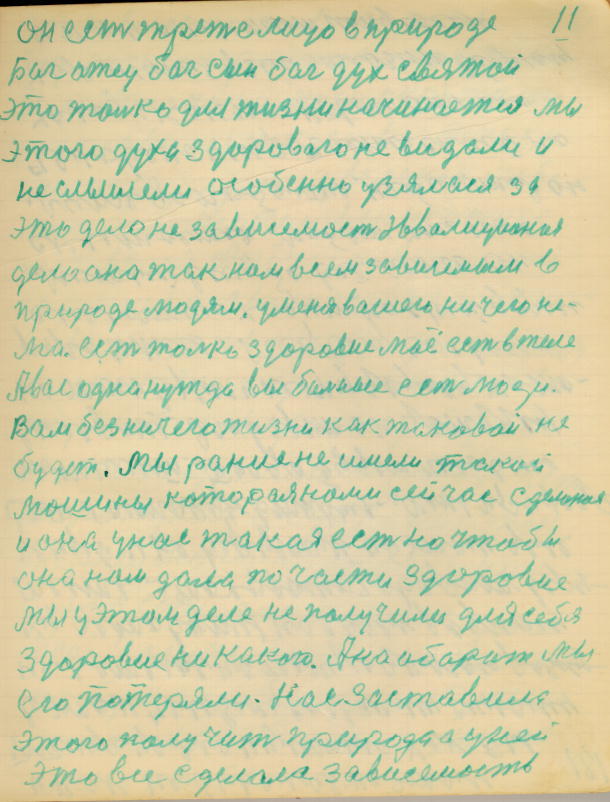 11
он ест трете лицо в природе
Бог отец бог сын бог дух святой
Это толко для жизни начинается мы
этого духа здорового не видали и
не слышели особенно узялися за
это дело не зависемост Эвволиционая
дело она так нам всем зависемым в
природе людям. у меня вашего ничего не-
ма. ест толко здоровие моё ест в теле
А вас одна нужда вы болные ест люди.
Вам без ничего жизни как таковой не
будет. Мы ранше не имели такой
мошины которая нами сейчас сделоная
и она у нас такая ест но чтобы
она нам дала по части здоровие
мы у этом деле не получили для себя
здоровие никакого. А наоборот мы
его потеряли. Нас заставила
этого получит природа а у ней
это все сделала зависемость